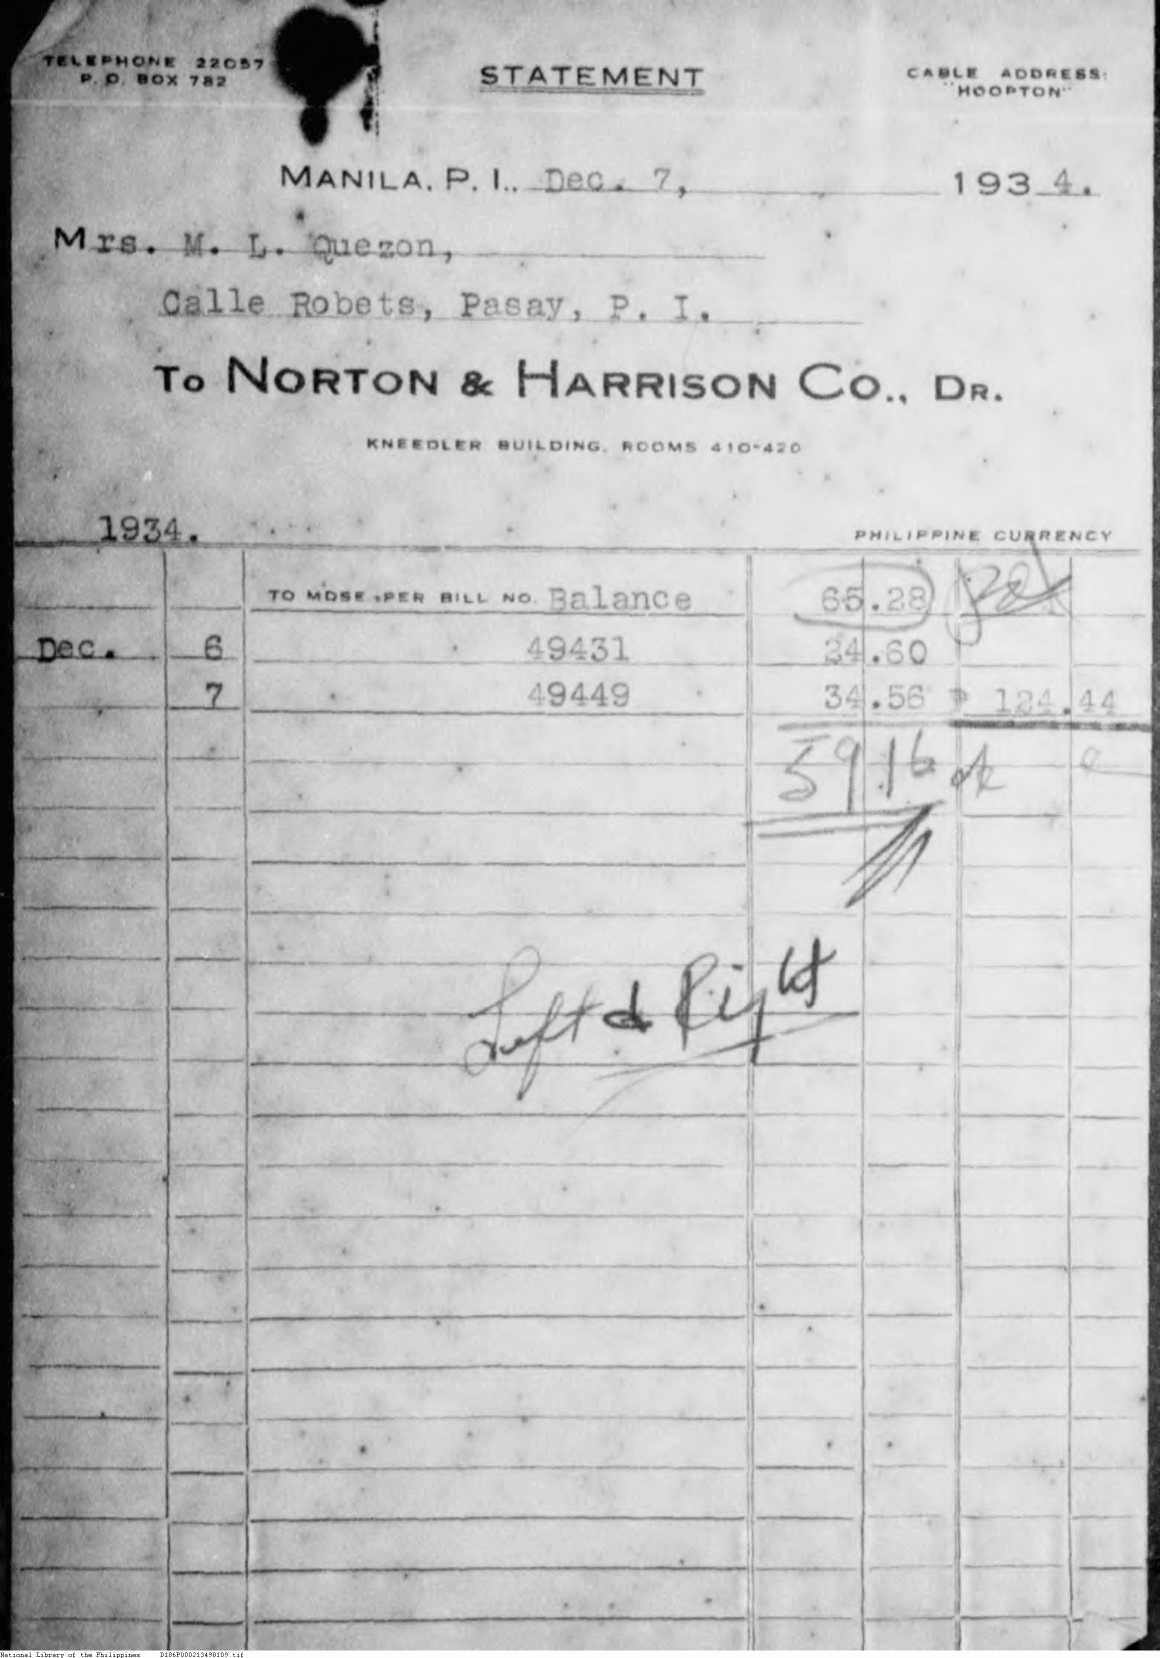 TELEPHONE 22057
P. O. BOX 782
STATEMENT
CABLE ADDRESS:
"HOOPTON"
MANILA, P. I., Dec. 7, 1934.
Mrs. M. L. Quezon,
Calle Robets, Pasay, P. I.
To NORTON & HARRISON CO., DR.
KNEEDLER BUILDING, ROOMS 410-420
1934.
PHILIPPINE CURRENCY
TO MDSE. PER BILL NO. Balance 65.28
Dec. 6 49431 24.60
7 49449 34.56 ₱ 124.44
59.16 ok
Left & Right
National Library of the Philippines D186P000213498109.tif